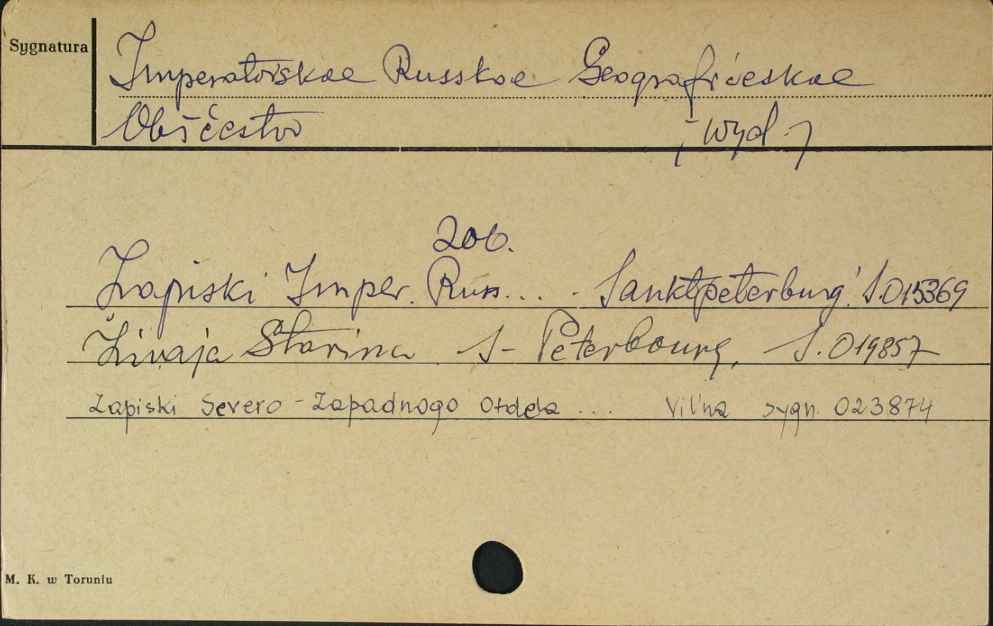 Sygnatura
Imperatorskoe Russkoe Geografičeskoe
Obščestvo ; wyd.
Zob.
Zapiski Imper. Russ... . Sanktpeterburg' S.015369
Živaja Starina S-Péterbourg, S. 019857
Zapiski Severo-Zapadnogo Otdela ... Vil'na sygn. 023874
M. K. w Toruniu